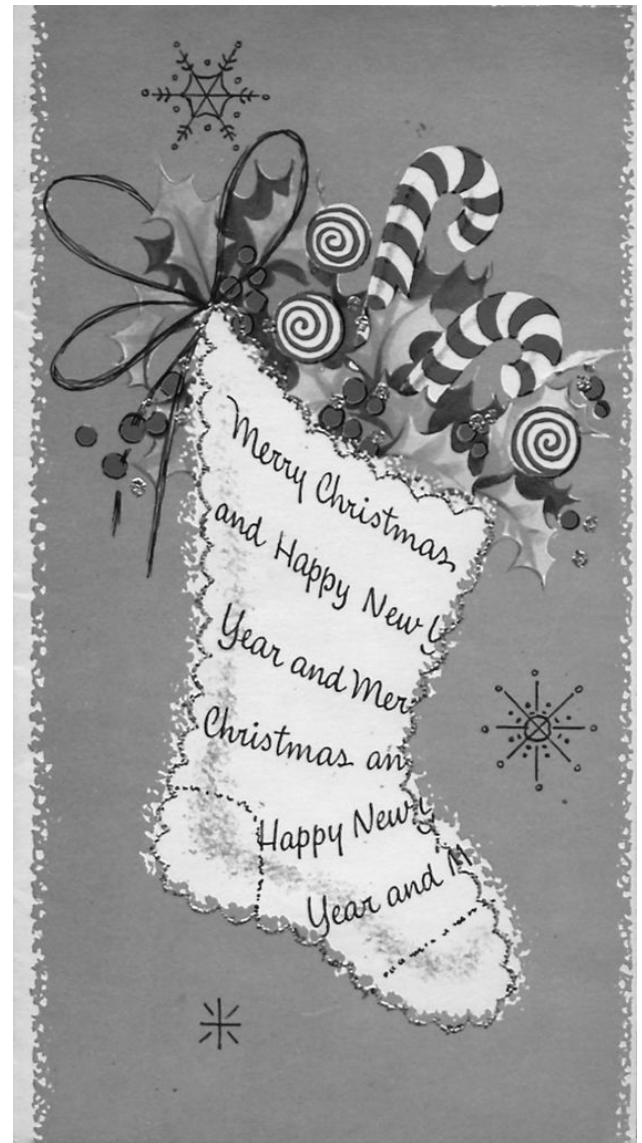 Merry Christmas
and Happy New Y
Year and Mer
Christmas an
Happy New Y
Year and M